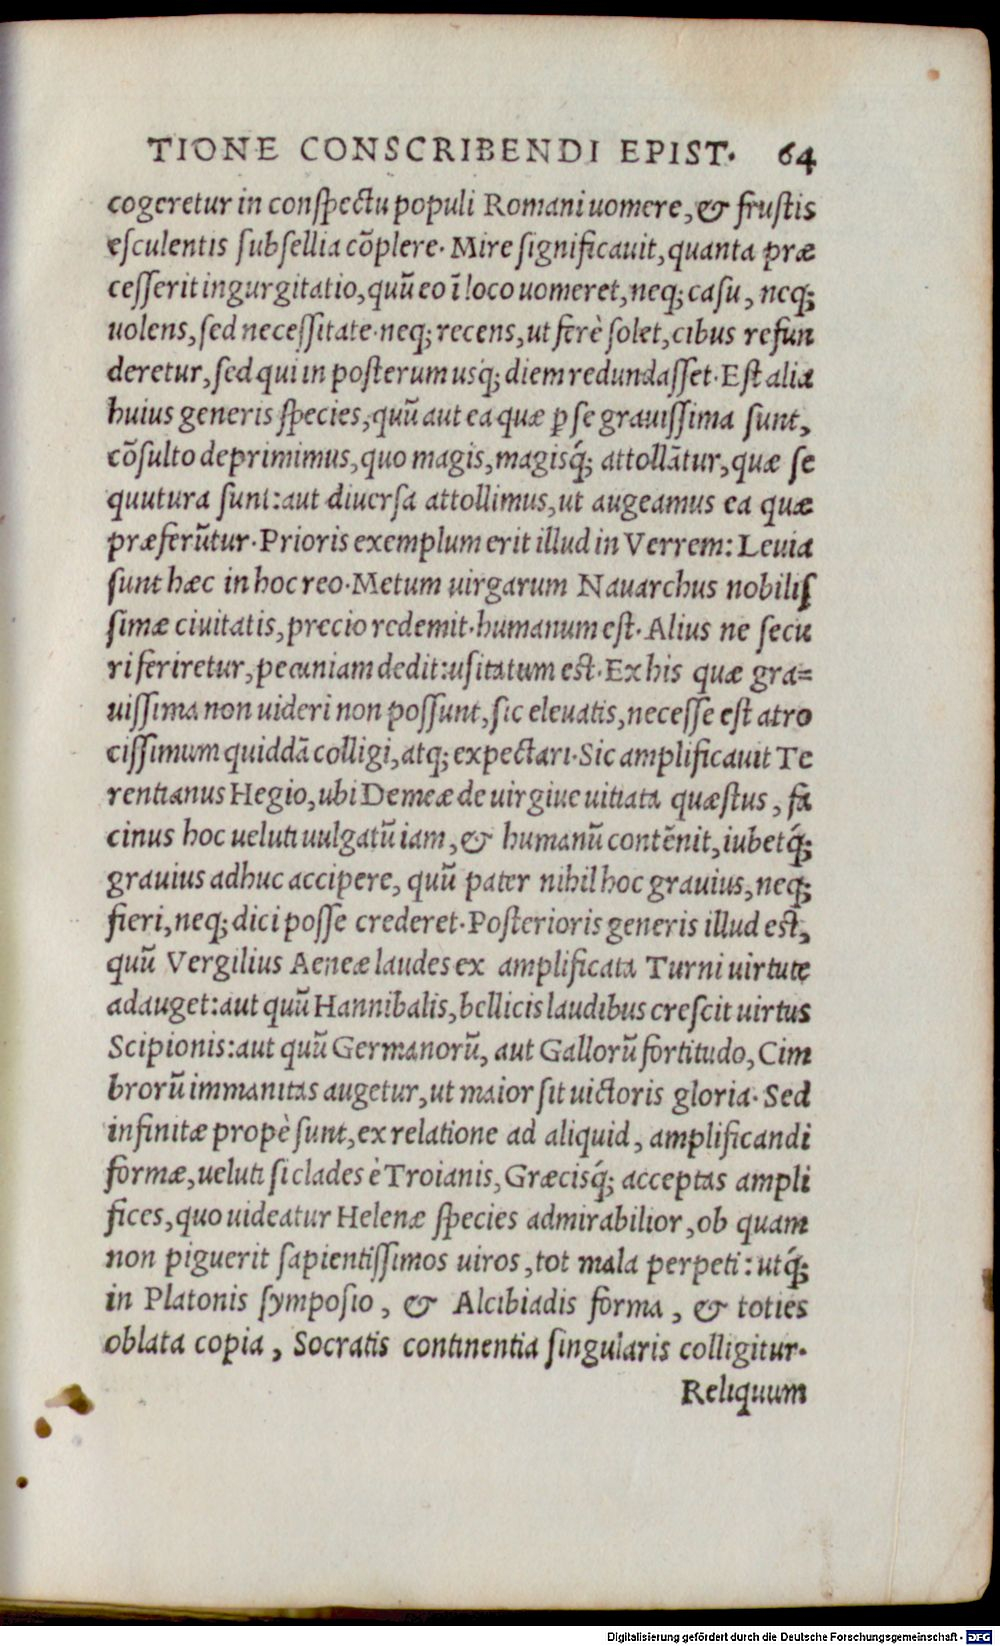 TIONE CONSCRIBENDI EPIST. 64
cogeretur in conspectu populi Romani uomere, & frustis
esculentis subsellia cōplere. Mire significauit, quanta præ
cesserit ingurgitatio, quū eo ī loco uomeret, neq; casu, neq;
uolens, sed necessitate. neq; recens, ut ferè solet, cibus refun
deretur, sed qui in posterum usq́; diem redundasset. Est alia
huius generis species, quū aut ea quæ p̱ se grauissima sunt,
cōsulto deprimimus, quo magis, magisq́; attollātur, quæ se
quutura sunt: aut diuersa attollimus, ut augeamus ea quæ
præferūtur. Prioris exemplum erit illud in Verrem: Leuia
sunt hæc in hoc reo. Metum uirgarum Nauarchus nobilis
simæ ciuitatis, precio redemit. humanum est. Alius ne secu
ri feriretur, pecuniam dedit: usitatum est. Ex his quæ gra=
uissima non uideri non possunt, sic eleuatis, necesse est atro
cissimum quiddā colligi, atq; expectari. Sic amplificauit Te
rentianus Hegio, ubi Demeæ de uirgine uitiata quæstus, fa
cinus hoc ueluti uulgatū iam, & humanū contēnit, iubetq́;
grauius adhuc accipere, quū pater nihil hoc grauius, neq;
fieri, neq; dici posse crederet. Posterioris generis illud est,
quū Vergilius Aeneæ laudes ex amplificata Turni uirtute
adauget: aut quū Hannibalis, bellicis laudibus crescit uirtus
Scipionis: aut quū Germanorū, aut Gallorū fortitudo, Cim
brorū immanitas augetur, ut maior sit uictoris gloria. Sed
infinitæ propè sunt, ex relatione ad aliquid, amplificandi
formæ, ueluti si clades è Troianis, Græcisq́; acceptas ampli
fices, quo uideatur Helenæ species admirabilior, ob quam
non piguerit sapientissimos uiros, tot mala perpeti: utq́;
in Platonis symposio, & Alcibiadis forma, & toties
oblata copia, Socratis continentia singularis colligitur.
Reliquum
Digitalisierung gefördert durch die Deutsche Forschungsgemeinschaft - DFG